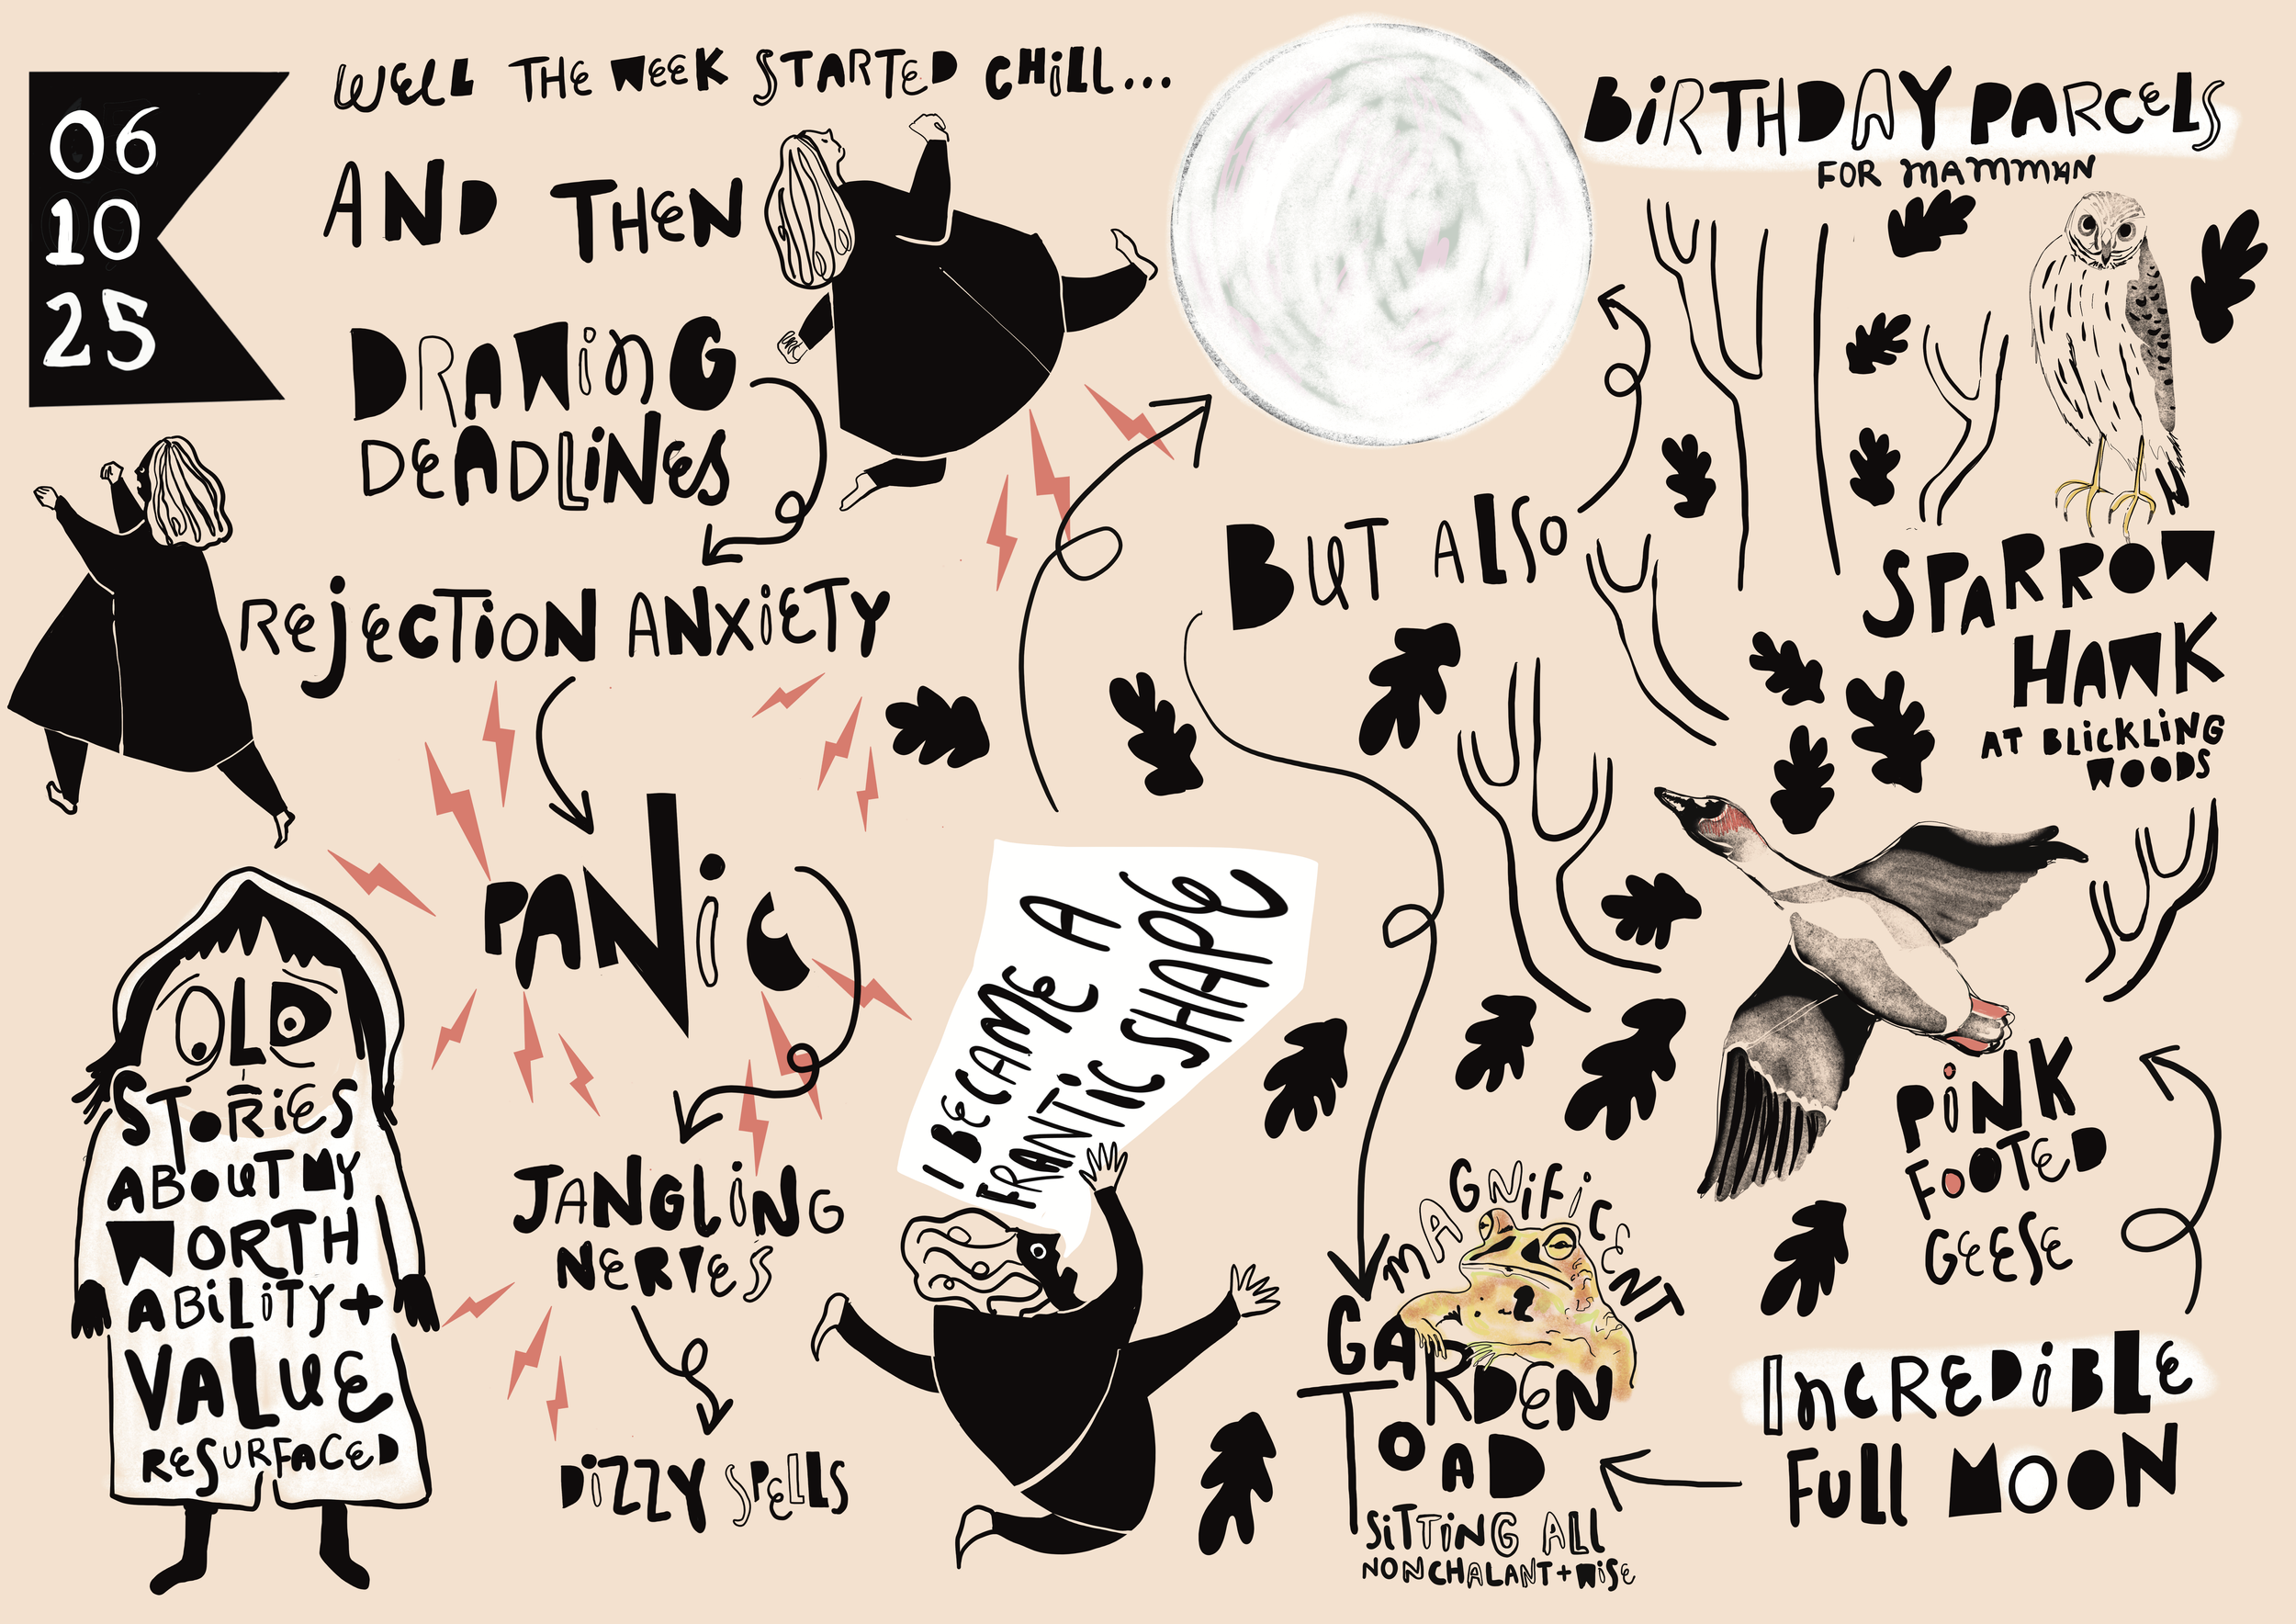 06
10
25
WELL THE WEEK STARTED CHILL...
AND THEN
DRAWING
DEADLINES
REJECTION ANXIETY
PANIC
JANGLING
NERVES
DIZZY SPELLS
OLD
STORIES
ABOUT MY
WORTH
ABILITY+
VALUE
RESURFACED
I BECAME A
FRANTIC SHAPE
BUT ALSO
BIRTHDAY PARCELS
FOR MAMMAN
SPARROW
HAWK
AT BLICKLING
WOODS
PINK
FOOTED
GEESE
INCREDIBLE
FULL MOON
MAGNIFICENT
GARDEN
TOAD
SITTING ALL
NONCHALANT+WISE